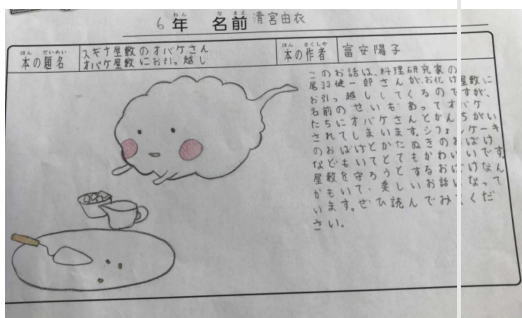 6年 名前 清宮由衣
ほん だいめい
本の題名
スギナ屋敷のオバケさん
オバケ屋敷にお引っ越し
ほん さくしゃ
本の作者
富安陽子
このお話は、料理研究家の
尾羽健一郎さんが、お化け屋敷に
お引っ越ししてくるのですが、
名前のせいもあってオバケ
たちにオバケさんとかんちがい
されてしまいます。シフォンケーキ
のおばけとかたぬきのおばけ
などもいてとてもかわいいです。
屋敷を守ろうとするおばけなん
かもいて、楽しいお話になって
います。ぜひ読んでみてくだ
さい。